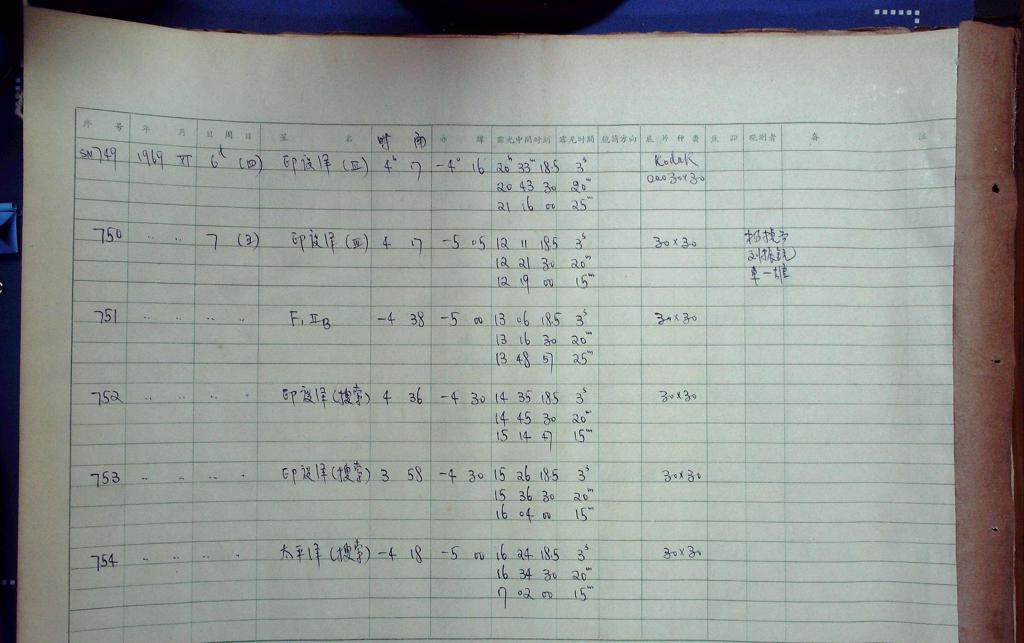 序 号 年 月 日 周 日 星 名 时 角 赤 纬 露光中间时刻 露光时间 镜筒方向 底片种类 观测者 备 注
SN749 1969 XI 6 (四) 印设洋 (Ⅲ) 4h 17 -4° 16 20h 33m 18.5 3s Kodak
20 43 30 20m 30×30
21 16 00 25m
750 .. .. 7 (五) 印设洋 (Ⅲ) 4 17 -5 05 12 11 18.5 3s 30×30
12 21 30 20m
12 19 00 15m
751 .. .. .. .. F, ⅡB -4 38 -5 00 13 06 18.5 3s 30×30
13 16 30 20m
13 48 57 25m
752 .. .. .. .. 印设洋 (搜索) 4 36 -4 30 14 35 18.5 3s 30×30
14 45 30 20m
15 14 47 15m
753 .. .. .. .. 印设洋 (搜索) 3 58 -4 30 15 26 18.5 3s 30×30
15 36 30 20m
16 04 00 15m
754 .. .. .. .. 太平洋 (搜索) -4 18 -5 00 16 24 18.5 3s 30×30
16 34 30 20m
7 02 00 15m